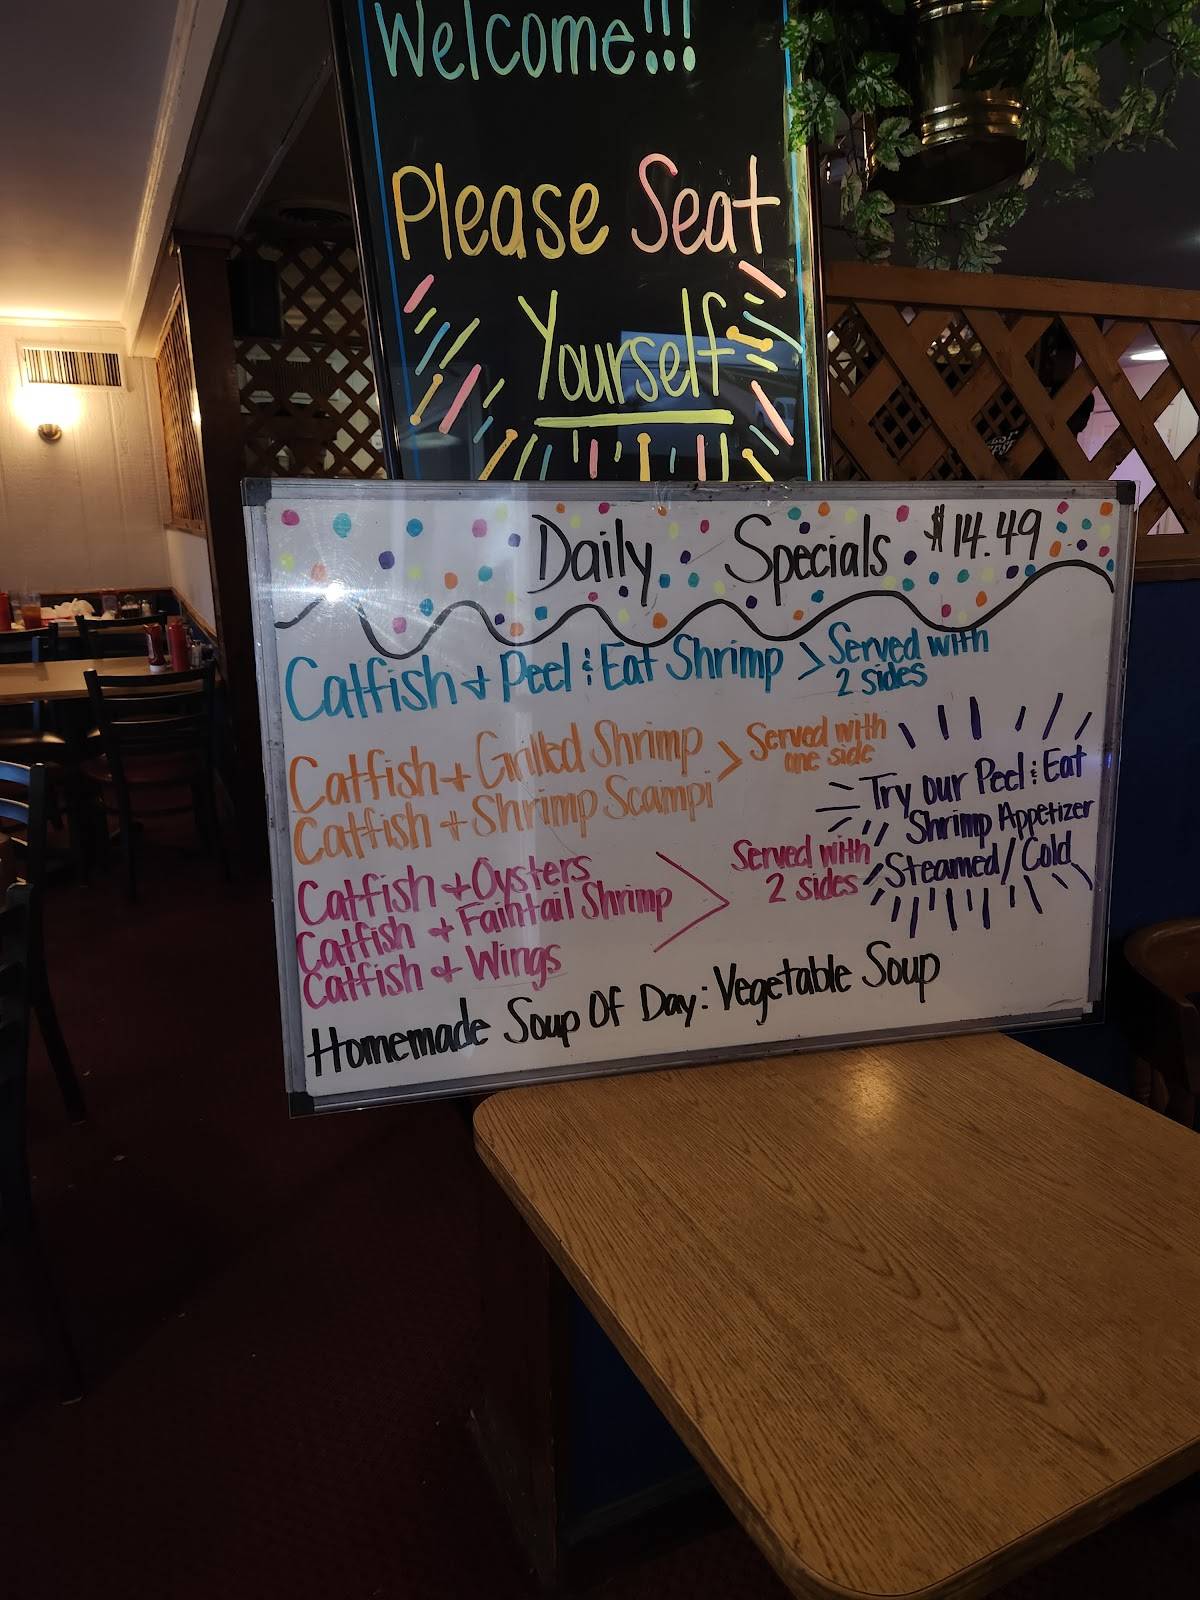 Welcome!!!
Please Seat
Yourself
Daily Specials $14.49
Catfish + Peel & Eat Shrimp > Served with
2 sides
Catfish + Grilled Shrimp > Served with
one side
Catfish + Shrimp Scampi
Catfish + Oysters
Catfish + Faintail Shrimp
Catfish + Wings
Served with
2 sides
Try our Peel & Eat
Shrimp Appetizer
Steamed/Cold
Homemade Soup Of Day: Vegetable Soup